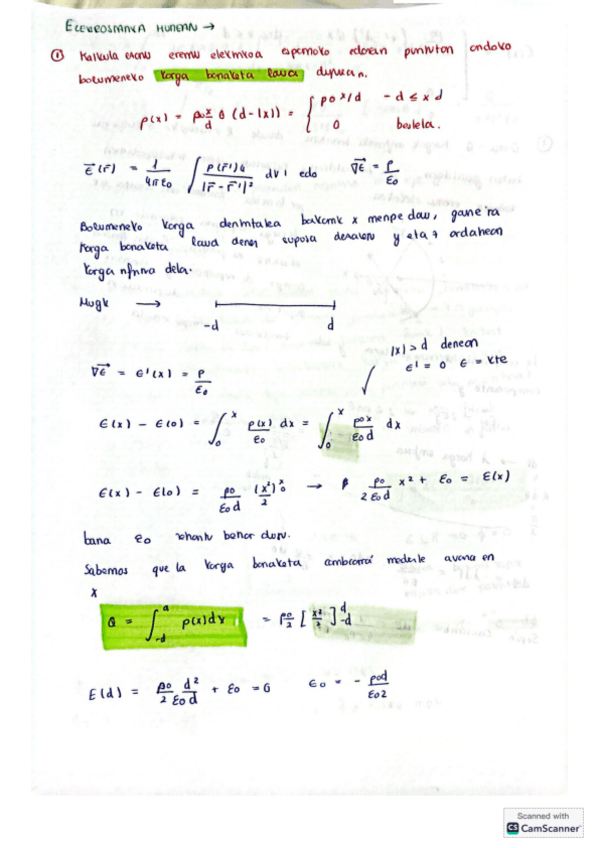 ELEKTROSTATIKA HUTSEAN →
① Kalkula ezazu eremu elektrikoa espazioko edozein puntutan ondoko
bolumeneko karga banaketa laua dugula.
ρ(x) = ρ0 x/d θ (d-|x|) = { ρ0 x/d   -d ≤ x d
0   bestela.
E(r) = 1/4πε0 ∫ ρ(r')û/|r-r'|² dV ; edo   ∇E = ρ/ε0
Bolumeneko karga dentsitatea bakarrik x menpe dau, gainera
karga banaketa laua denez suposa dezakegu y eta z ardatzean
karga infinitua dela.
Mugk →
-d   d
∇E = E'(x) = ρ/ε0
|x| > d denean
E' = 0   E = kte
E(x) - E(0) = ∫0^x ρ(x)/ε0 dx = ∫0^x ρ0x/ε0d dx
E(x) - E(0) = ρ0/ε0d (x²/2)0^x → ρ0/2ε0d x² + E0 = E(x)
baina E0 zehaztu behar dugu.
Sabemos que la karga banaketa en
x
Q = ∫-d^a ρ(x)dx = ρ0/2 [x²/2]-d^d
E(d) = ρ0/2 d²/ε0d + E0 = 0   E0 = - ρ0d/ε02
Scanned with
CS CamScanner